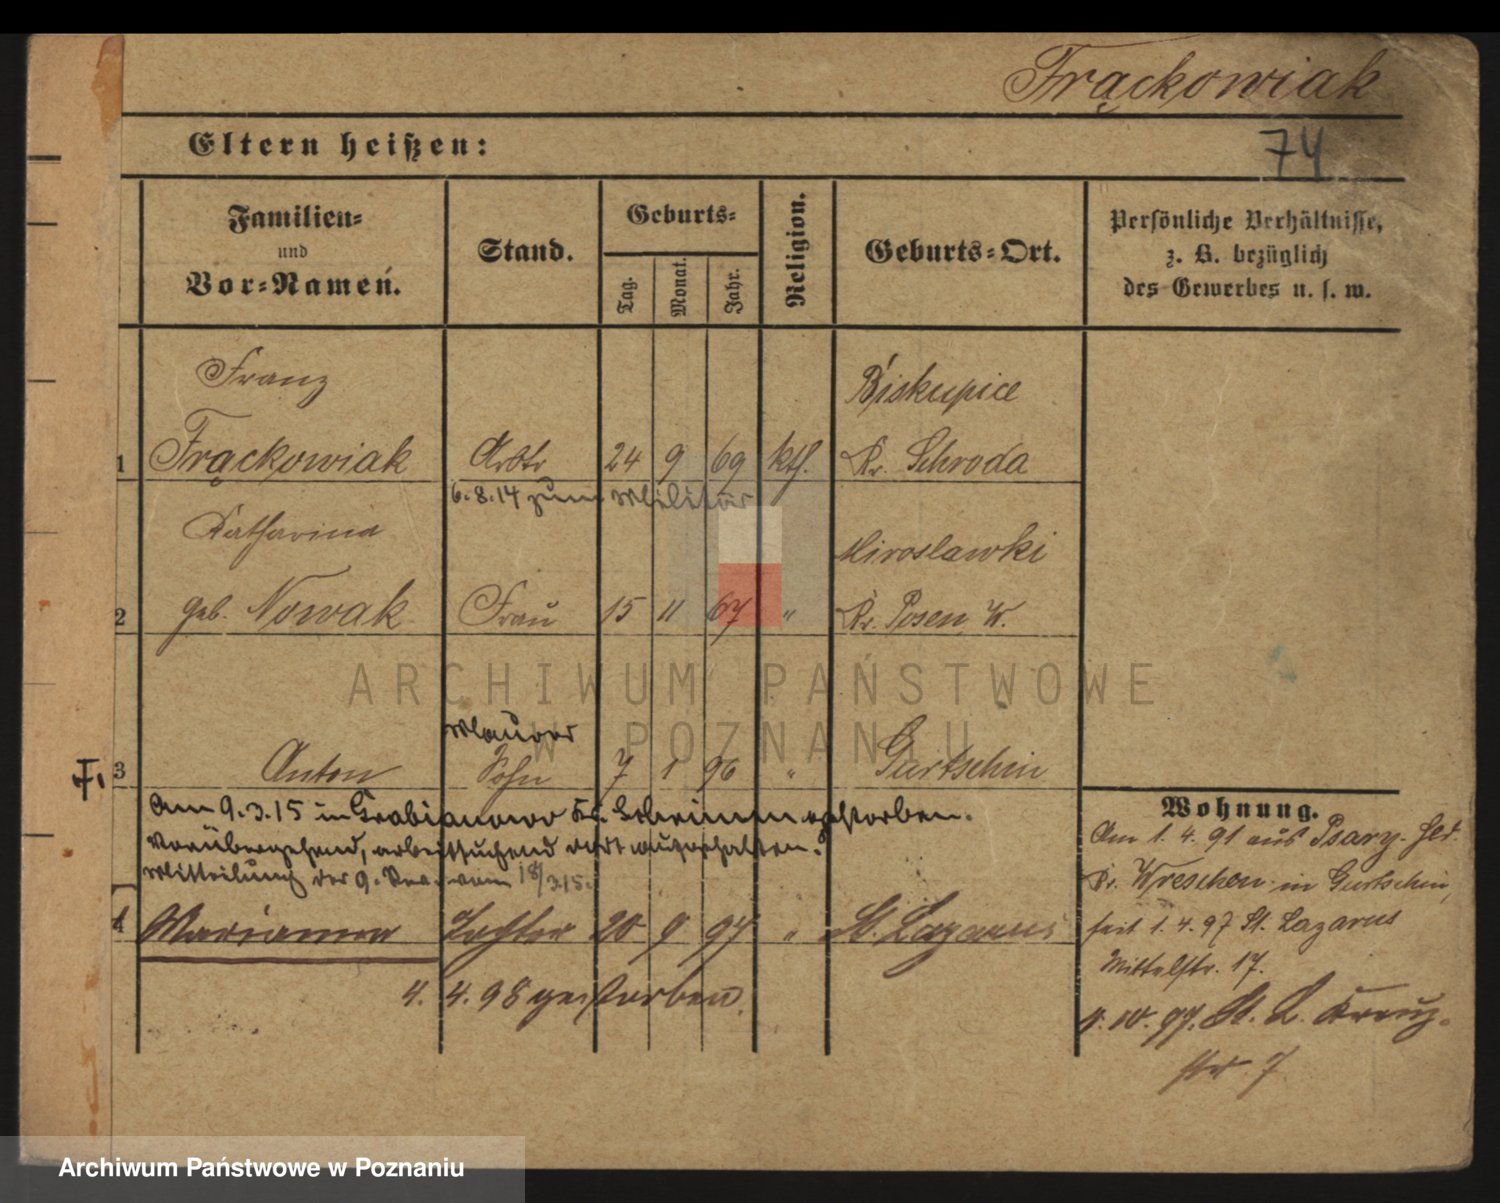 Frąckowiak
74
Eltern heißen:
Familien=
und
Vor=Namen.
Stand.
Geburts=
Tag.
Monat.
Jahr.
Religion.
Geburts=Ort.
Persönliche Verhältnisse,
z. B. bezüglich
des Gewerbes u. s. w.
Franz
Biskupice
1 Frąckowiak Arbtr 24 9 69 ktl. Kr. Schroda
6.8.14 zum Militär
Katharina
Miroslawki
2 geb. Nowak Frau 15 11 67 " Kr. Posen W.
Maurer
F. 3 Anton Sohn 7 1 96 " Gurtschin
Am 9.3.15 in Grabianowo Kr. Schrimm gestorben.
Vorübergehend, arbeitsuchend dort aufgehalten.
Mitteilung der 9. vom 18/3 15.
4 Marianna Tochter 20 9 97 " St. Lazarus
4. 4. 98 gestorben.
Wohnung.
Am 1. 4. 91 aus Psary
Kr. Wreschen in Gurtschin,
seit 1. 4. 97 St. Lazarus
Mittelstr. 17.
97. St. L. Kreuz-
str 7
ARCHIWUM PAŃSTWOWE
W POZNANIU
Archiwum Państwowe w Poznaniu